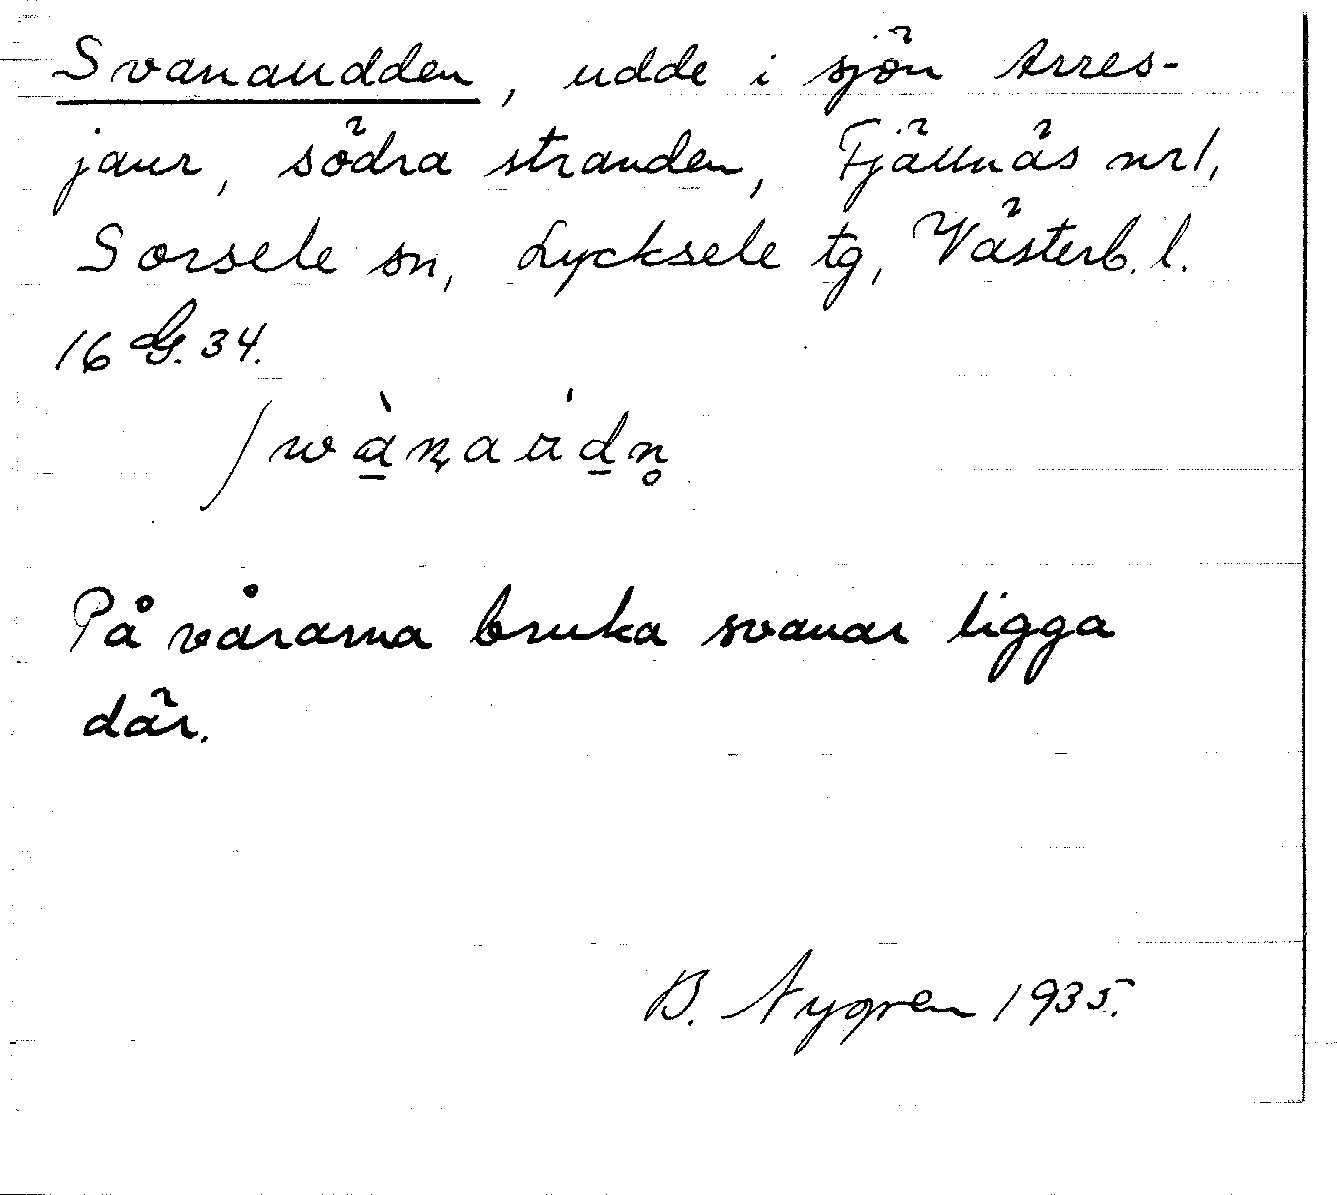 Svanaudden, udde i sjön Arres-
jaur, södra stranden, Fjällnäs nr 1,
Sorsele sn, Lycksele tg, Västerb. l.
16 G. 34.
På vårarna bruka svanar ligga
där.
B. Nygren 1935.